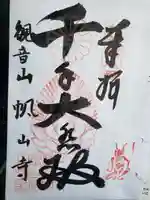 奉拝
千手大悲殿
観音山 帆山寺